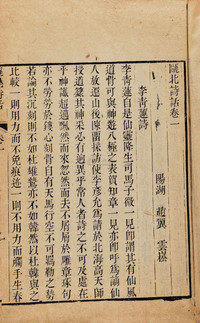 甌北詩話卷一
陽湖 趙翼 雲崧
李青蓮詩
李青蓮自是仙靈降生司馬子微一見即謂其有仙風
道骨可與神遊八極之表賀知章一見亦即呼為謫仙
人放還山後陳留採訪使李彥允為請於北海高天師
授道籙其神采必有迥異乎常人者詩之不可及處在
乎神識超邁飄然而來忽然而去不屑屑於雕章琢句
亦不勞勞於鏤心刻骨自有天馬行空不可羈勒之勢
若論其沉刻則不如杜雄鷙亦不如韓然以杜韓與之
比較一則用力而不免痕迹一則不用力而觸手生春